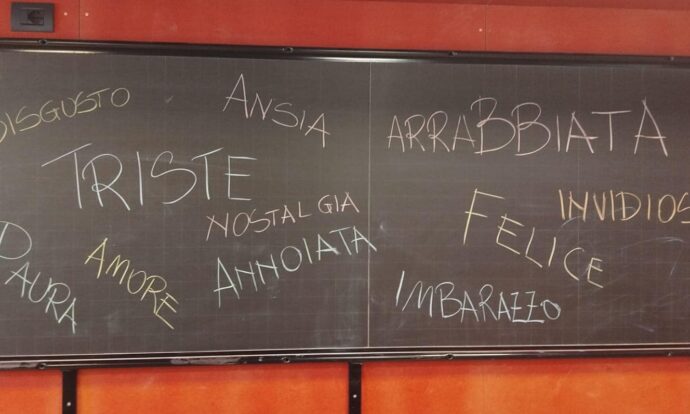 DISGUSTO
ANSIA
ARRABBIATA
TRISTE
NOSTALGIA
INVIDIOS
FELICE
PAURA
AMORE
ANNOIATA
IMBARAZZO